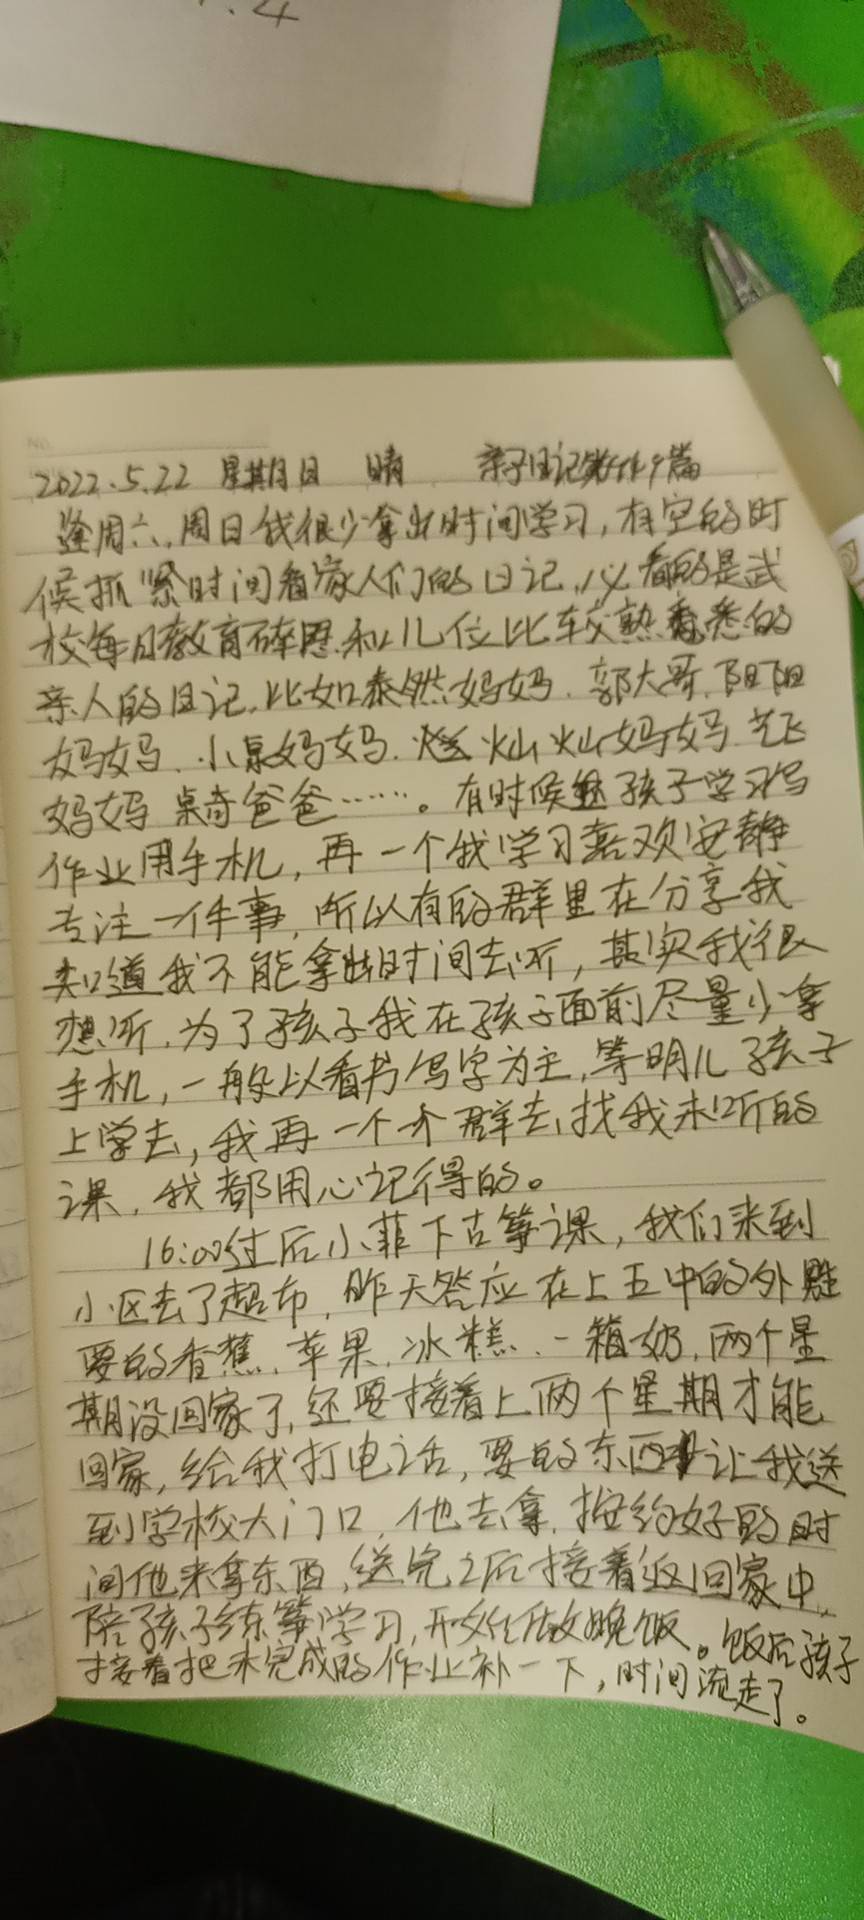 .4
2022.5.22 星期日 晴 亲子日记第 篇
逢周六,周日我很少拿出时间学习,有空的时
候抓紧时间看家人们的日记,必看的是武
校每日教育碎思和几位比较熟悉的
亲人的日记,比如泰然妈妈、郭大哥、阳阳
妈妈、小泉妈妈、灿灿妈妈、艺飞
妈妈 桌奇爸爸……。有时候孩子学习写
作业用手机,再一个我学习喜欢安静
专注一件事,所以有的群里在分享我
知道我不能拿出时间去听,其实我很
想听,为了孩子我在孩子面前尽量少拿
手机,一般以看书写字为主,等明儿孩子
上学去,我再一个个群去找我未听的
课,我都用心记得的。
16:00过后小菲下古筝课,我们来到
小区去了超市,昨天答应在上五中的外甥
要的香蕉、苹果、冰糕、一箱奶,两个星
期没回家了,还要接着上两个星期才能
回家,给我打电话,要的东西让我送
到学校大门口,他去拿,按约好的时
间他来拿东西,送完之后接着返回家中,
陪孩子练筝学习,开始做晚饭。饭后孩子
接着把未完成的作业补一下,时间流走了。